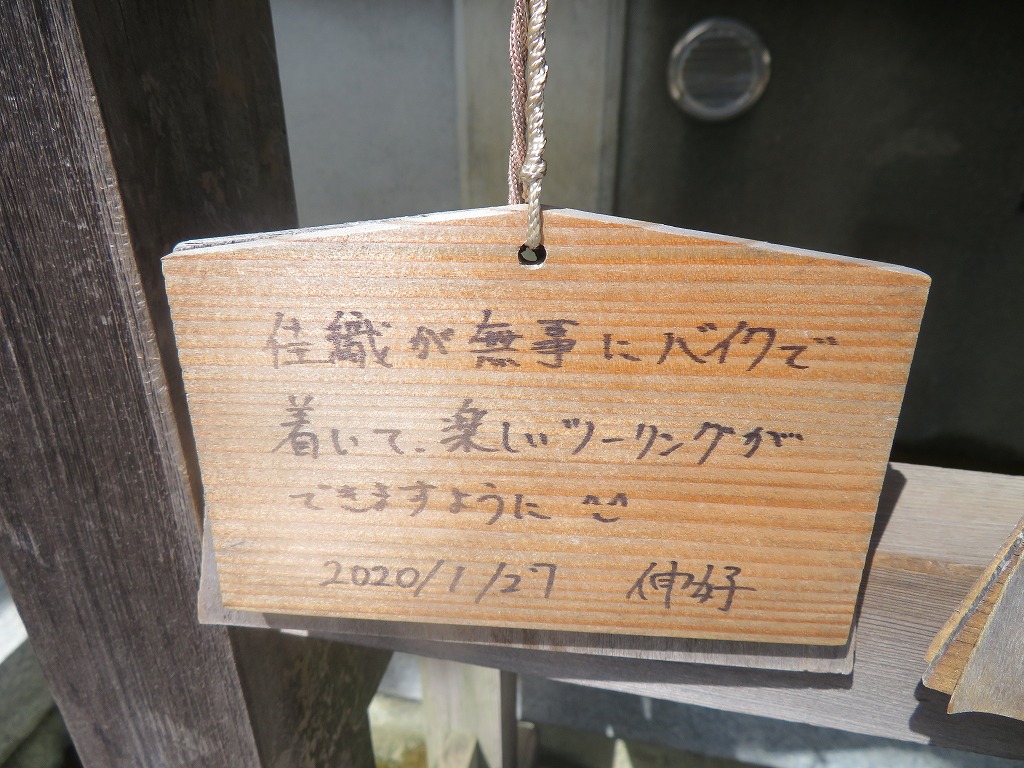 佳織が無事にバイクで
着いて、楽しいツーリングが
できますように ^^
2020/1/27 伸好